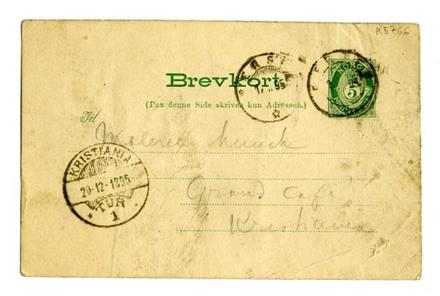 K5766
Brevkort
(Paa denne Side skrives kun Adressen.)
NORGE
5
95
Til
Maleren Munch
KRISTIANIA
20-12-1895
TUR
1
Grand Café
Kristiania